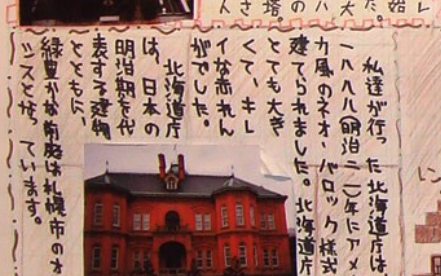 私達が行った北海道庁は
一八八八(明治二一)年にアメ
カ風のネオ・バロック様式
建てられました。北海道庁
とても大き
くて、キレ
イな赤れん
がでした。
北海道庁
は、日本の
明治期を代
表する建物
とともに、
緑豊かな前庭は札幌市のオ
シスとなっています。